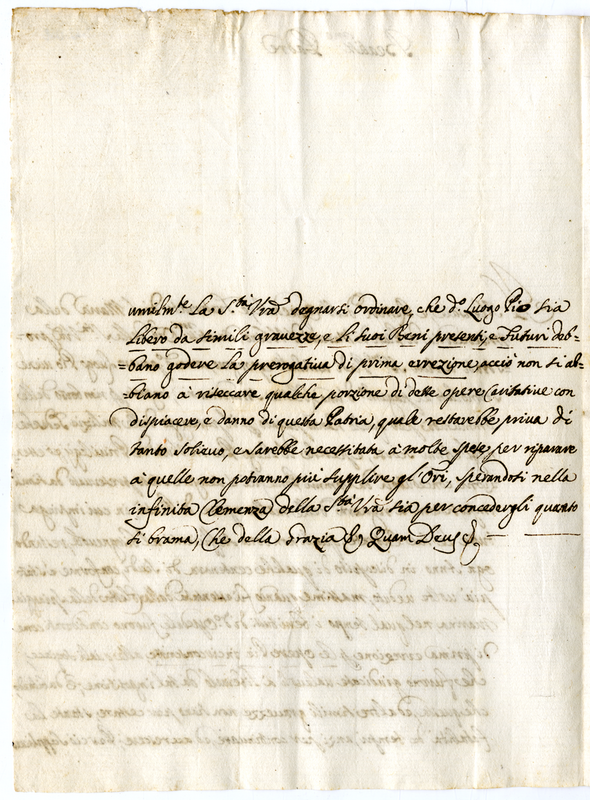 umilm.te La S.tà Vrã degnarsi ordinare, che d.o Luogo Pio sia
libero da simili gravezze, e li suoi Beni presenti, e Futuri deb=
=bano godere La prerogativa di prima errezione, acciò non si ab=
=biano à riseccare qualche porzione di dette opere Caritative con
dispiacere, e danno di questa Patria, quale restarebbe priva di
tanto solievo, e sarebbe necessitata à molte spese per riparare
à quelle non potranno più supplire gl'Ori, sperandosi nella
infinita Clemenza della S.tà Vrã sia per concedergli quanto
si brama, Che della Grazia Quam Deus